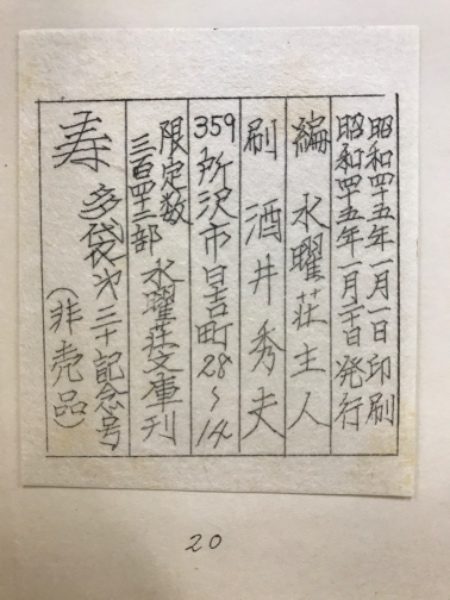 昭和四十五年一月一日印刷
昭和四十五年一月二十日発行
編 水曜荘主人
刷 酒井秀夫
359 所沢市日吉町28〜14
限定数
三百四十二部
水曜荘文庫刊
寿多袋㐧三十記念号
(非売品)
20